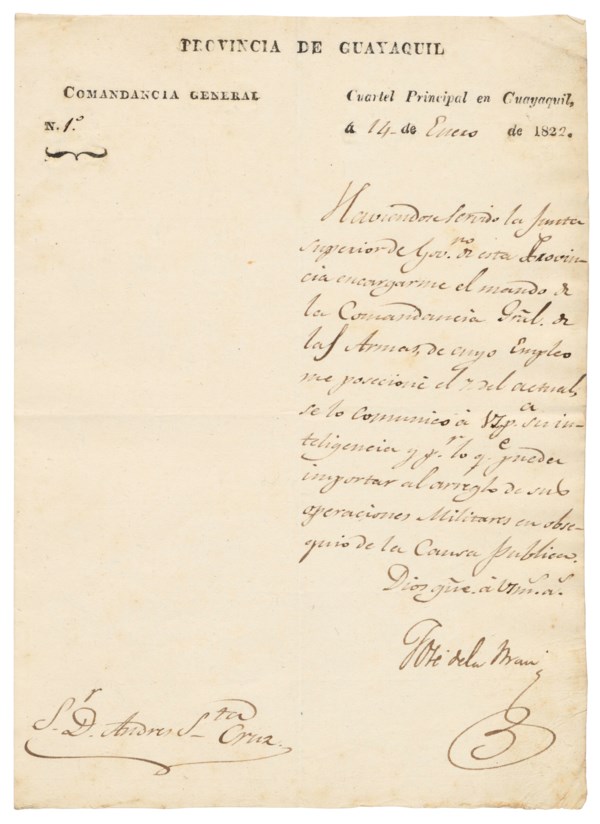 PROVINCIA DE GUAYAQUIL
COMANDANCIA GENERAL
N. 1.º
Cuartel Principal en Guayaquil,
á 14 de Enero de 1822.
Haviendose servido la Junta
superior de Gov.no de esta Provin-
cia encargarme el mando de
la Comandancia Gral. de
las Armas, de cuyo Empleo
me posecioné el 7 del actual,
se lo comunico á VS p.a su in-
teligencia y p.r lo q.e pueda
importar al arreglo de sus
operaciones Militares en obse-
quio de la Causa Publica.
Dios gue. á VS m.s a.s
José de la Mar
S.r D. Andres S.ta Cruz.